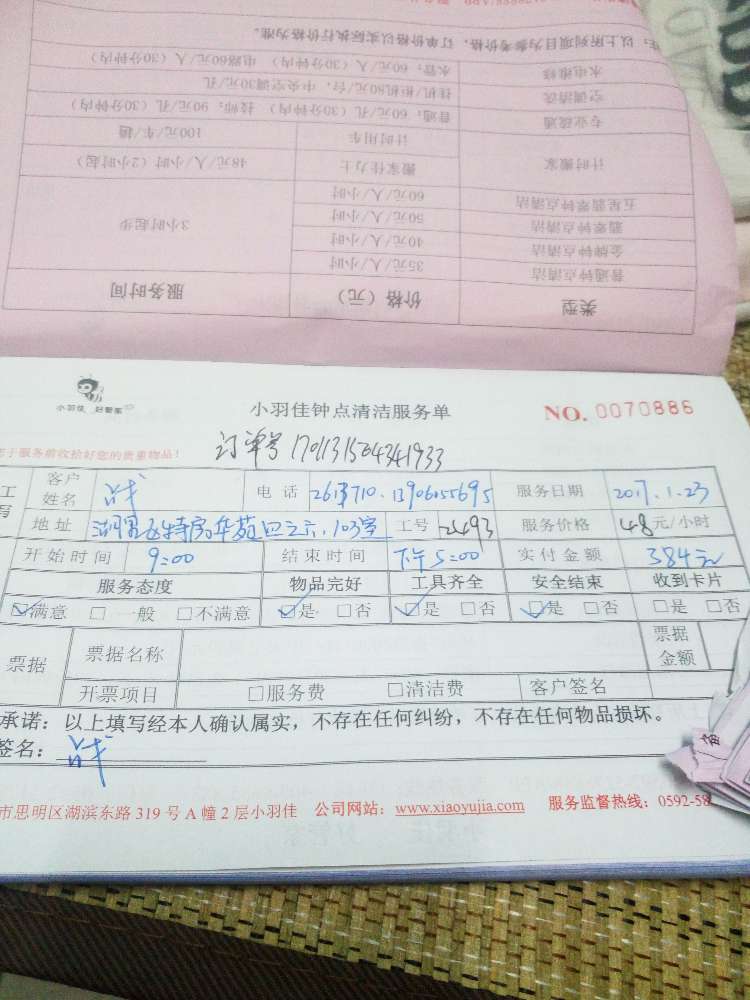 注：以上所列项目为参考价格，订单价格以实际执行价格为准。
水电维修 水管：60元/人（30分钟内） 电路60元/人（30分钟内）
空调清洗 挂机/柜机80元/台，中央空调30元/孔
专业疏通 普通：60元/孔（30分钟内） 技师：90元/孔（30分钟内）
计时搬家 计时用车 100元/车/趟
搬家佳力士 48元/人/小时（2小时起）
五星翡翠钟点清洁 60元/人/小时
翡翠钟点清洁 50元/人/小时 3小时起步
金牌钟点清洁 40元/人/小时
普通钟点清洁 35元/人/小时
类型 价格（元） 服务时间
小羽佳 好管家
小羽佳钟点清洁服务单
NO. 0070886
订单号
于服务前收拾好您的贵重物品！
客户姓名 电话 服务日期 2017.1.23
地址 103室 工号 2493 服务价格 48元/小时
开始时间 9:00 结束时间 下午5:00 实付金额 384元
服务态度 物品完好 工具齐全 安全结束 收到卡片
☑满意 □一般 □不满意 ☑是 □否 ☑是 □否 ☑是 □否 □是 □否
票据 票据名称 票据金额
开票项目 □服务费 □清洁费 客户签名
承诺：以上填写经本人确认属实，不存在任何纠纷，不存在任何物品损坏。
签名：
市思明区湖滨东路 319 号 A 幢 2 层小羽佳 公司网站：www.xiaoyujia.com 服务监督热线：0592-58